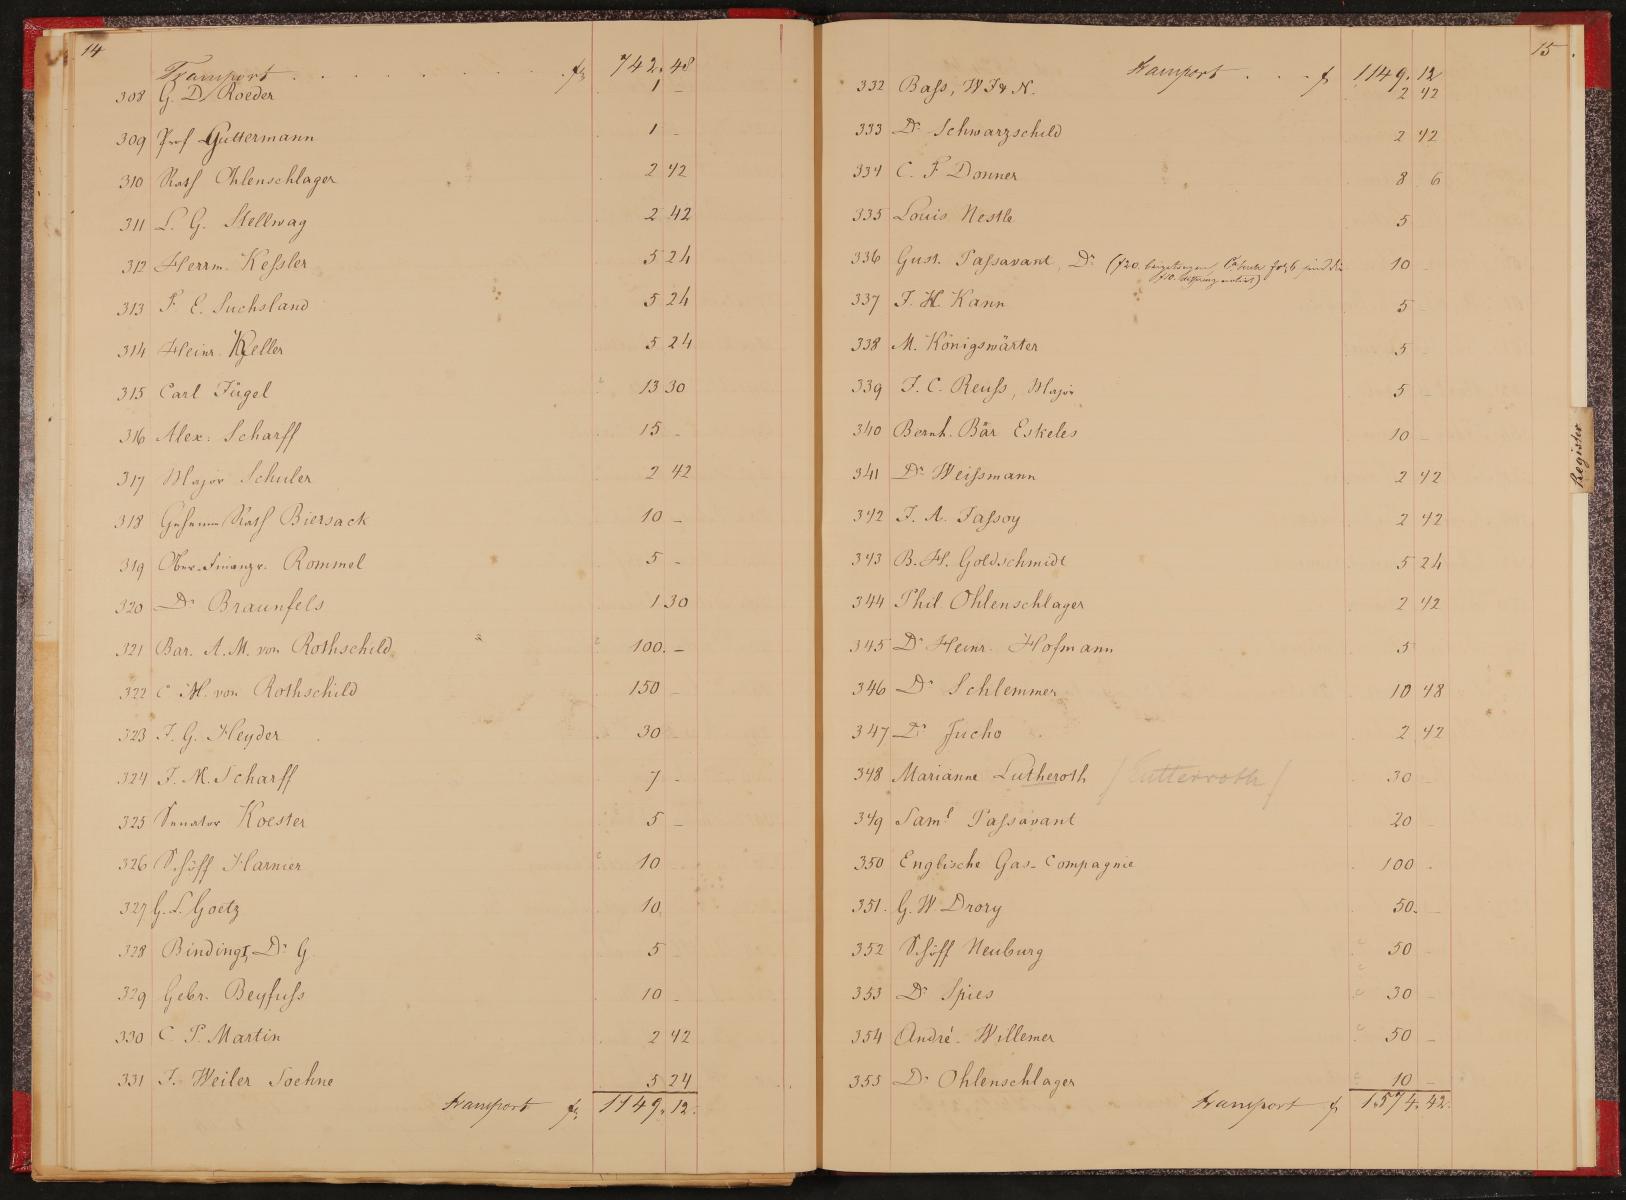 14
Transport . . . . . . . . . . fr 742. 48
308 G. D. Roeder 1 –
309 Prof Guttermann 1 –
310 Rath Ohlenschlager 2 42
311 L. G. Stellwag 2 42
312 Herrm. Keſsler 5 24
313 F. E. Suchsland 5 24
314 Heinr. Keller 5 24
315 Carl Fügel 13 30
316 Alex. Scharff 15 –
317 Major Schuler 2 42
318 Geheim Rath Biersack 10 –
319 Ober-Finanzr. Rommel 5 –
320 Dr Braunfels 1 30
321 Bar. A. M. von Rothschild 100. –
322 C. M. von Rothschild 150 –
323 J. G. Heyder 30
324 J. M. Scharff 7 –
325 Senator Koester 5 –
326 Schöff Harnier 10
327 G. L. Goetz 10
328 Binding, Dr G. 5
329 Gebr. Beyfuſs 10 –
330 C. P. Martin 2 42
331 J. Weiler Soehne 5 24
Transport fr. 1149. 12.
15
Transport . . . f 1149. 12
332 Baſs, W J & N. 2 42
333 Dr Schwarzschild 2 42
334 C. F Donner 8 6
335 Louis Nestle 5
336 Gust. Paſsavant, Dr (f20. 10 –
337 J. H. Kann 5 –
338 M. Königswärter 5 –
339 J. C. Reuſs, Major 5 –
340 Bernh. Bär Eskeles 10 –
341 Dr Weiſsmann 2 42
342 J. A. Jaſsoy 2 42
343 B. H. Goldschmidt 5 24
344 Phil. Ohlenschlager 2 42
345 Dr Heinr. Hofmann 5
346 Dr Schlemmer 10 48
347 Dr Jucho 2 42
348 Marianne Lutheroth / Lutterroth / 30 –
349 Saml Paſsavant 20 –
350 Englische Gas-Compagnie 100 –
351. G. W. Drory 50. –
352 Schöff Neuburg 50 –
353 Dr Spies 30 –
354 André-Willemer 50 –
355 Dr Ohlenschlager 10 –
Transport f 1.574. 42.
Register